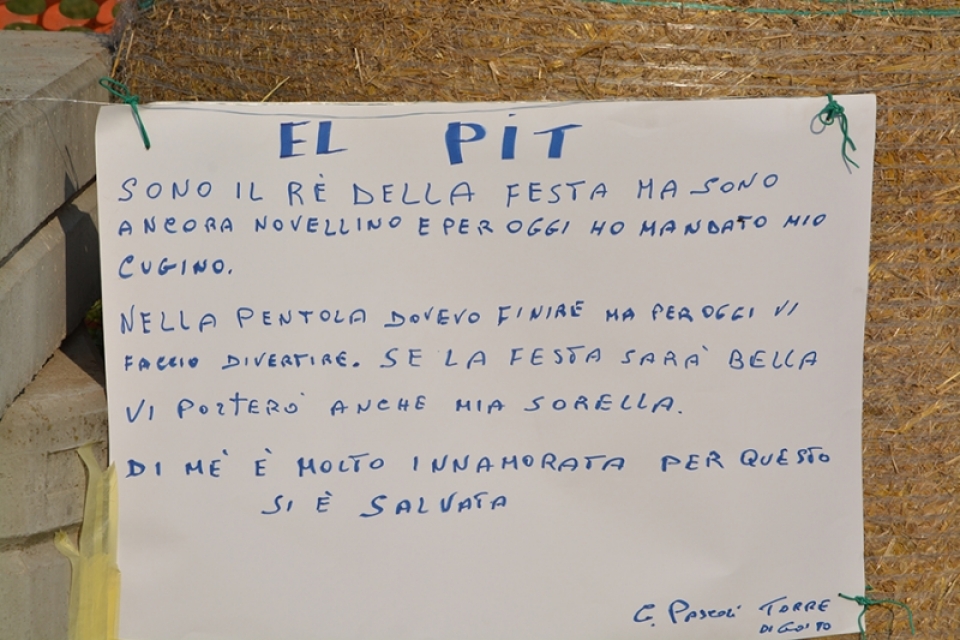 EL PiT
SONO IL RÈ DELLA FESTA MA SONO
ANCORA NOVELLINO E PER OGGI HO MANDATO MIO
CUGINO.
NELLA PENTOLA DOVEVO FINIRE MA PER OGGI VI
FACCIO DIVERTIRE. SE LA FESTA SARA' BELLA
VI PORTERO' ANCHE MIA SORELLA.
DI ME' È MOLTO INNAMORATA PER QUESTO
SI È SALVATA
G. PASCOLI TORRE
DI GOITO